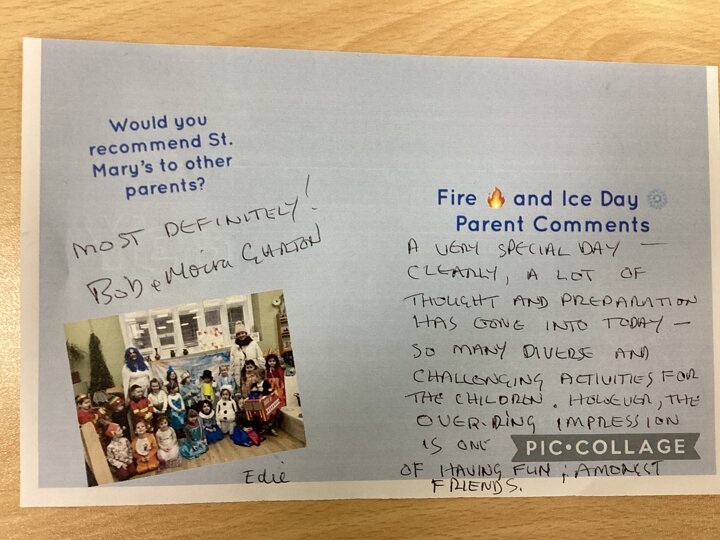 Would you
recommend St.
Mary's to other
parents?
MOST DEFINITELY!
Bob & Moira
Edie
Fire 🔥 and Ice Day ❄️
Parent Comments
A VERY SPECIAL DAY —
CLEARLY, A LOT OF
THOUGHT AND PREPARATION
HAS GONE INTO TODAY —
SO MANY DIVERSE AND
CHALLENGING ACTIVITIES FOR
THE CHILDREN. HOWEVER, THE
OVER-RIDING IMPRESSION
IS ONE
PIC•COLLAGE
OF HAVING FUN, AMONGST
FRIENDS.